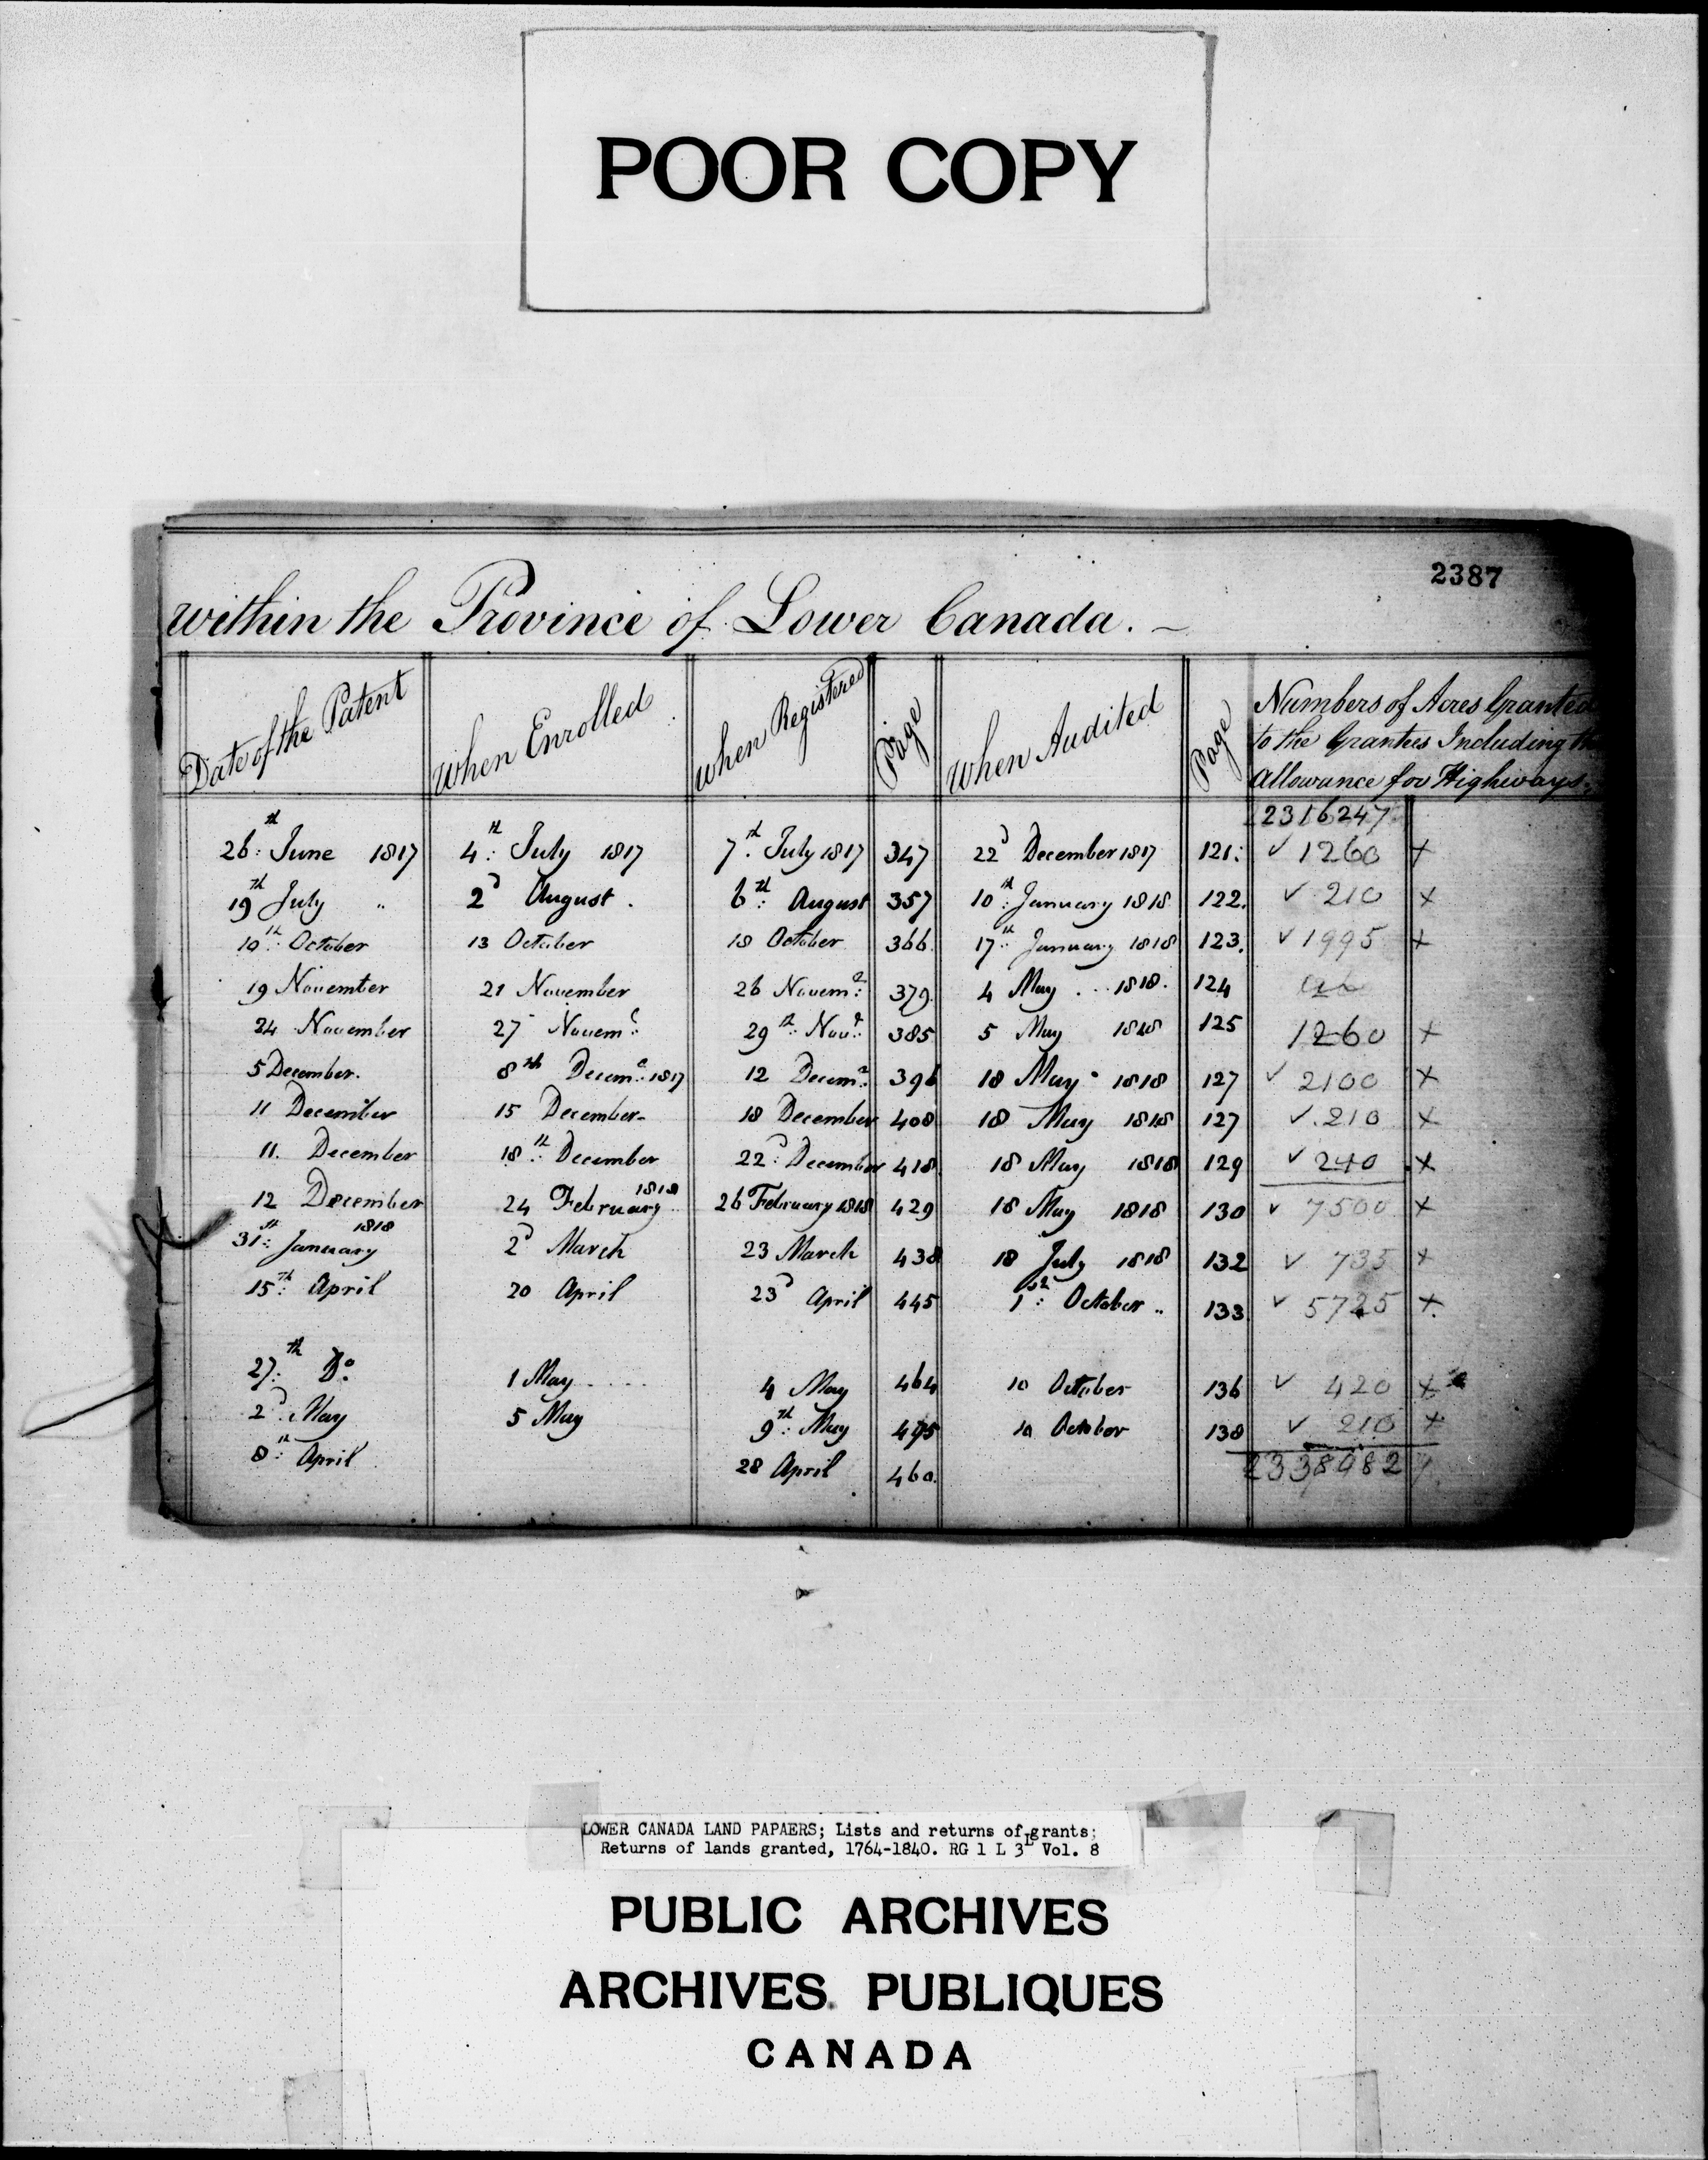 POOR COPY
2387
within the Province of Lower Canada. –
Date of the Patent When Enrolled When Registered Page When Audited Page Numbers of Acres Granted
to the Grantees Including the
Allowance for Highways.
2316247
26th June 1817 4th July 1817 7th July 1817 347 22d December 1817 121 ✓ 1260 X
19th July " 2d August. 6th August 357 10th January 1818 122. ✓ 210 X
10th October 13 October 18 October 366 17th January 1818 123. ✓ 1995 X
19 November 21 November 26 Novemr 379. 4 May 1818. 124
24 November 27 Novemr 29th Novr 385 5 May 1818 125 1260 X
5 December. 8th Decemr 1817 12 Decemr 396 18 May 1818 127 ✓ 2100 X
11 December 15 December 18 December 408 18 May 1818 127 ✓ 210 X
11. December 18th December 22d December 418 18 May 1818 129 ✓ 210 X
12 December 24 February 1818 26 February 1818 429 18 May 1818 130 ✓ 7500 X
31st January 1818 2d March 23 March 438 18 July 1818 132 ✓ 735 X
15th April 20 April 23d April 445 1st October " 133 ✓ 5725 X
27th Do 1 May 4 May 464 10 October 136 ✓ 420 X
2d May 5 May 9th May 475 10 October 138 ✓ 210 X
8th April 28 April 460.
LOWER CANADA LAND PAPAERS; Lists and returns of grants;
Returns of lands granted, 1764-1840. RG 1 L 3L Vol. 8
PUBLIC ARCHIVES
ARCHIVES PUBLIQUES
CANADA